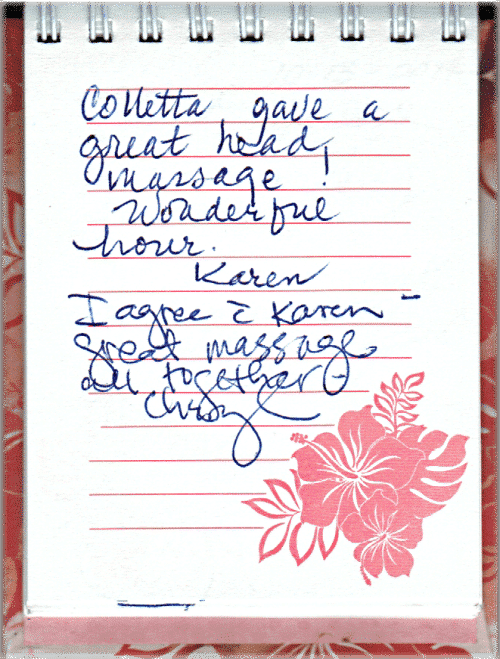 Colletta gave a
great head
massage!
Wonderful
hour.
Karen
I agree c̄ Karen -
great massage
all together -